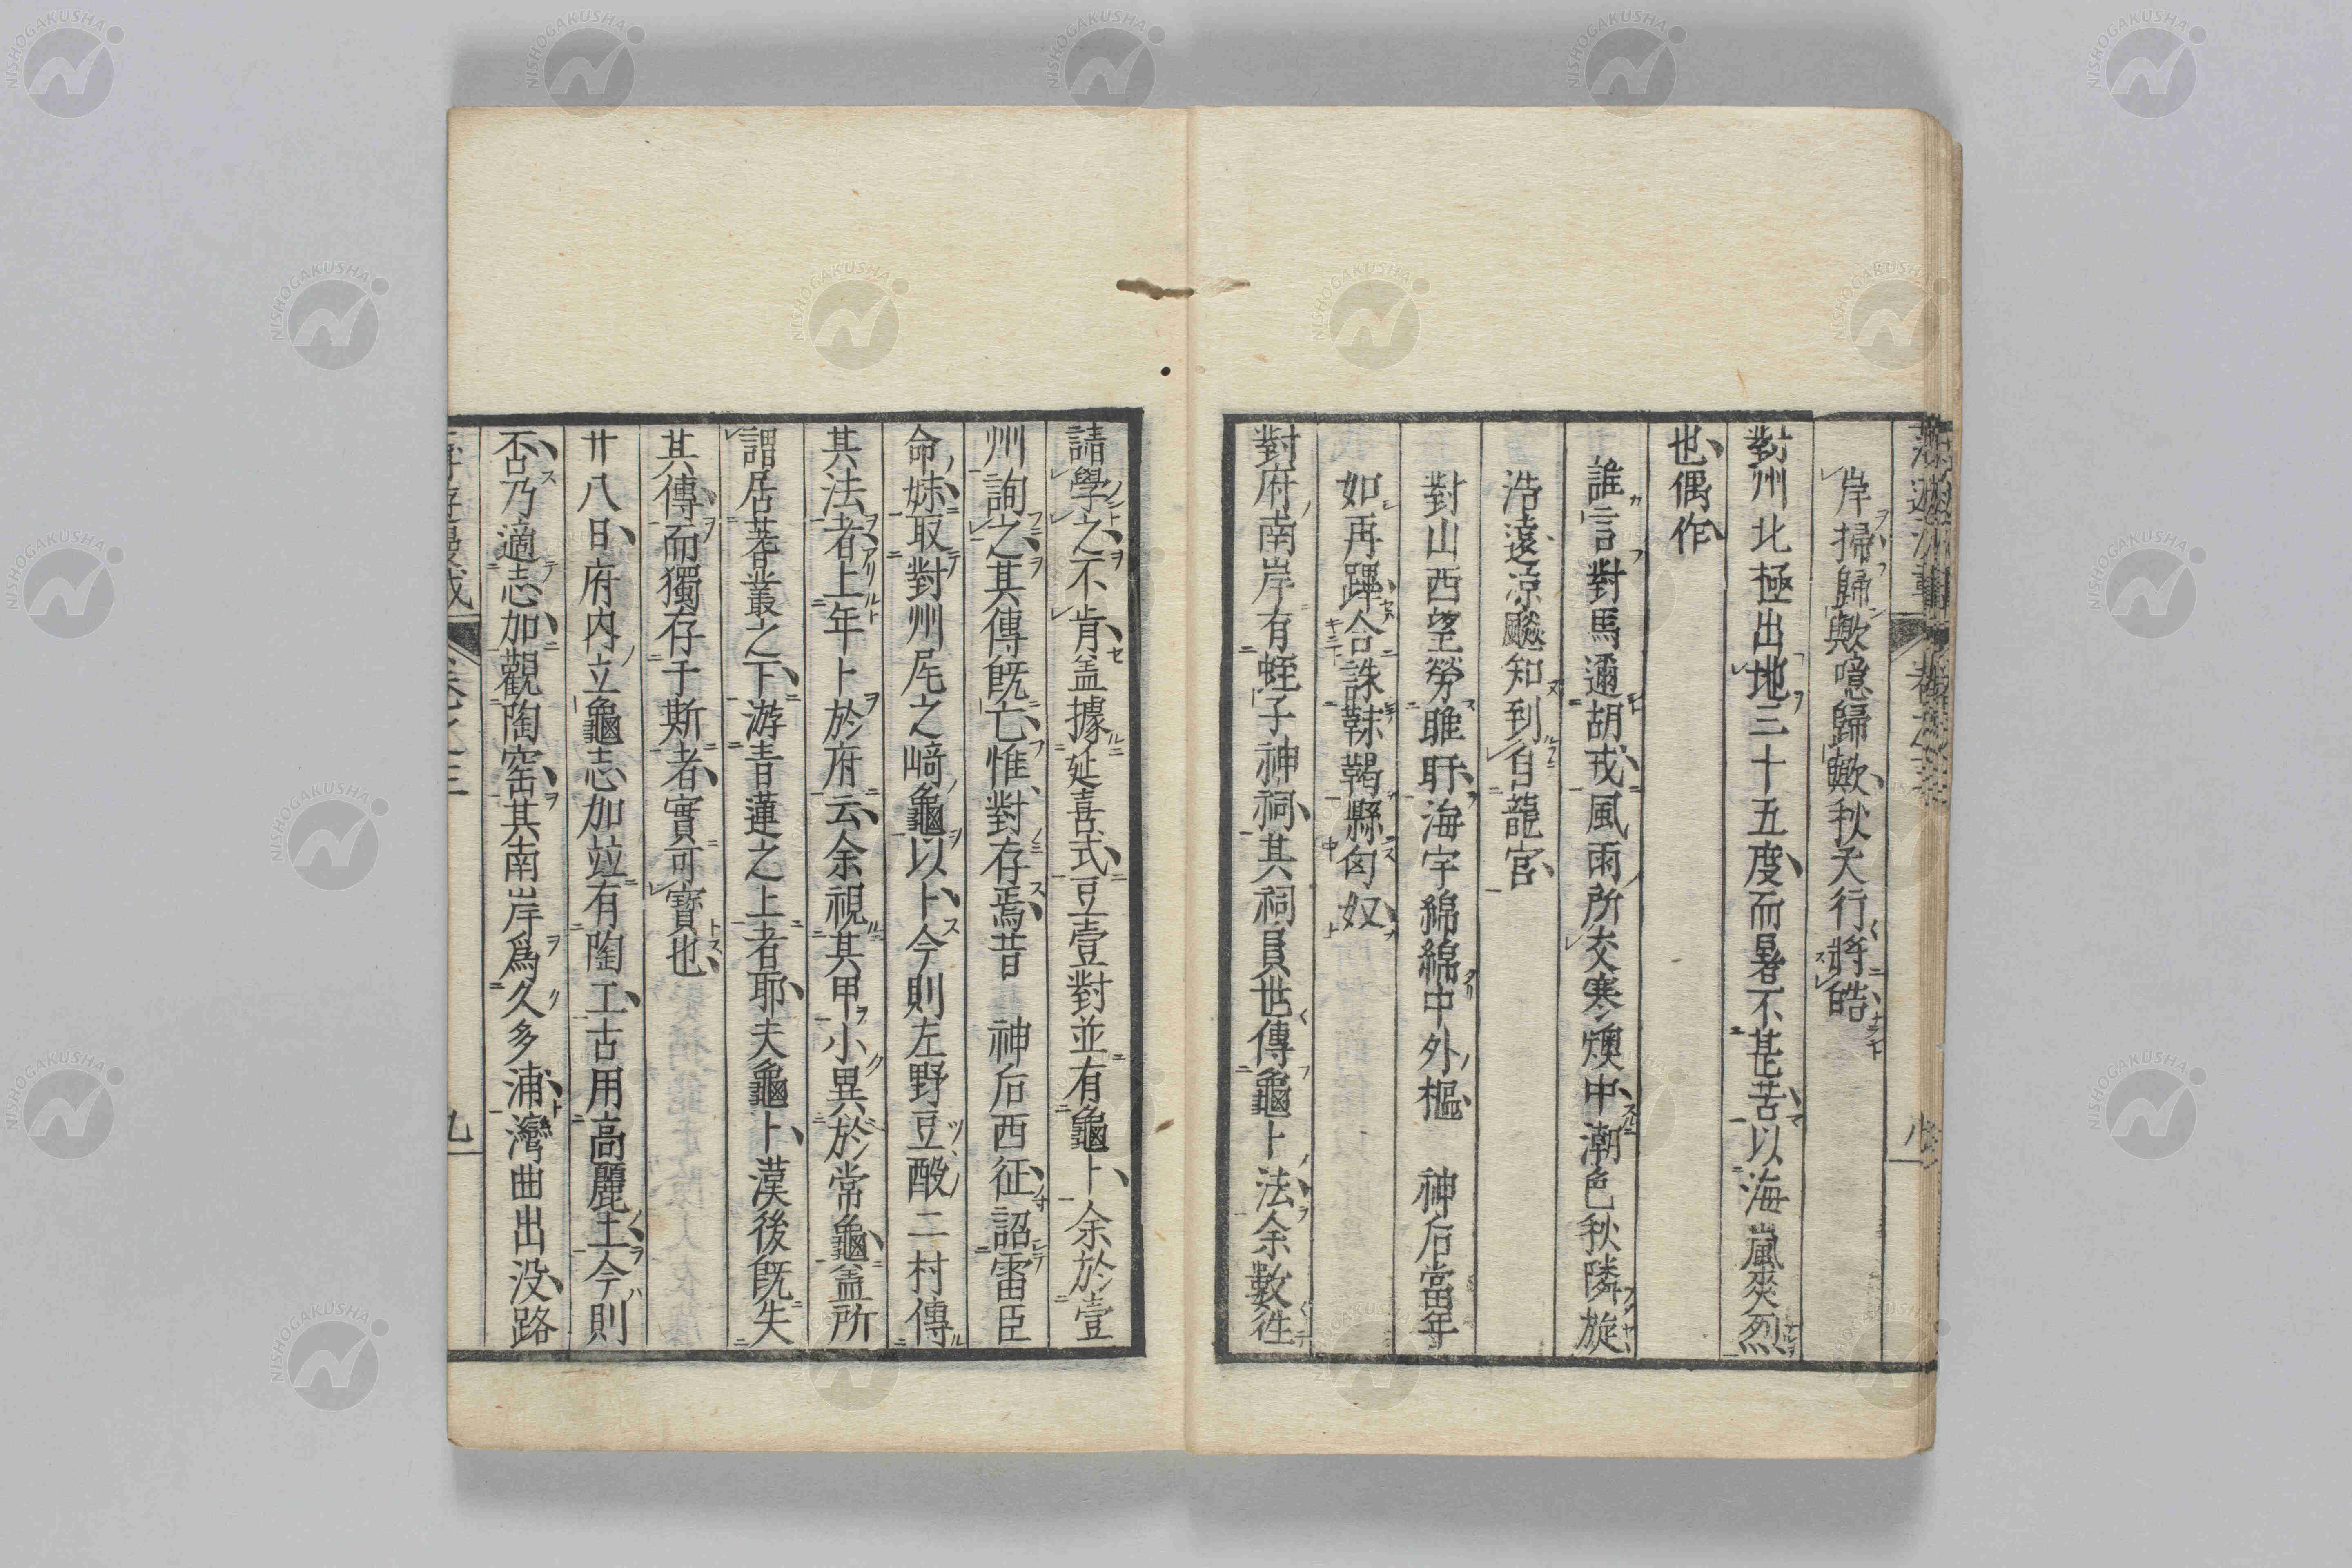 岸掃歸歟噫歸歟秋天行將皓
對州北極出地三十五度而暑不甚苦以海嵐爽烈
也偶作
誰言對馬邇胡戎風雨所交寒燠中潮色秋隣旋
浩遠涼飈知到自龍宮
對山西望勞睢盱海宇綿綿中外樞　神后當年
如再蹕合誅韎鞨縣匈奴
對府南岸有蛭子神祠其祠員世傳龜卜法余數徃
請學之不肯盖據延喜式豆壹對並有龜卜余於壹
州詢之其傳旣亡惟對存焉昔　神后西征詔雷臣
命妹取對州尾之﨑龜以卜今則左野豆酘二村傳
其法者上年卜於府云余視其甲小異於常龜盖所
謂居蓍叢之下游青蓮之上者耶夫龜卜漢後旣失
其傳而獨存于斯者實可寶也
廿八日府內立龜志加竝有陶工古用高麗土今則
否乃適志加觀陶窑其南岸爲久多浦灣曲出没路
卷之三
九
NISHOGAKUSHA